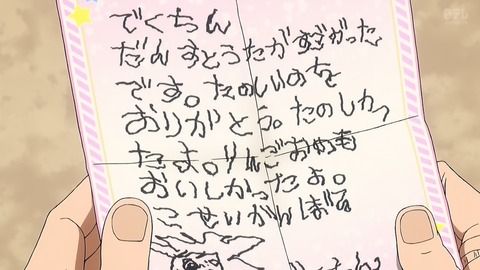 でくちん
だんすとうたがすごかった
です。たのしいのを
おりがとう。たのしかっ
たよ。りんごおめも
おいしかったよ。
こせいがんばる